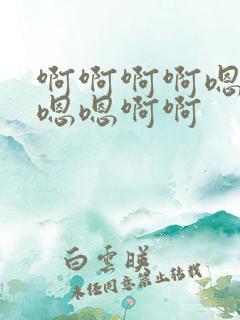 啊啊啊啊嗯
嗯嗯啊啊
白雲暎
未经同意禁止转载